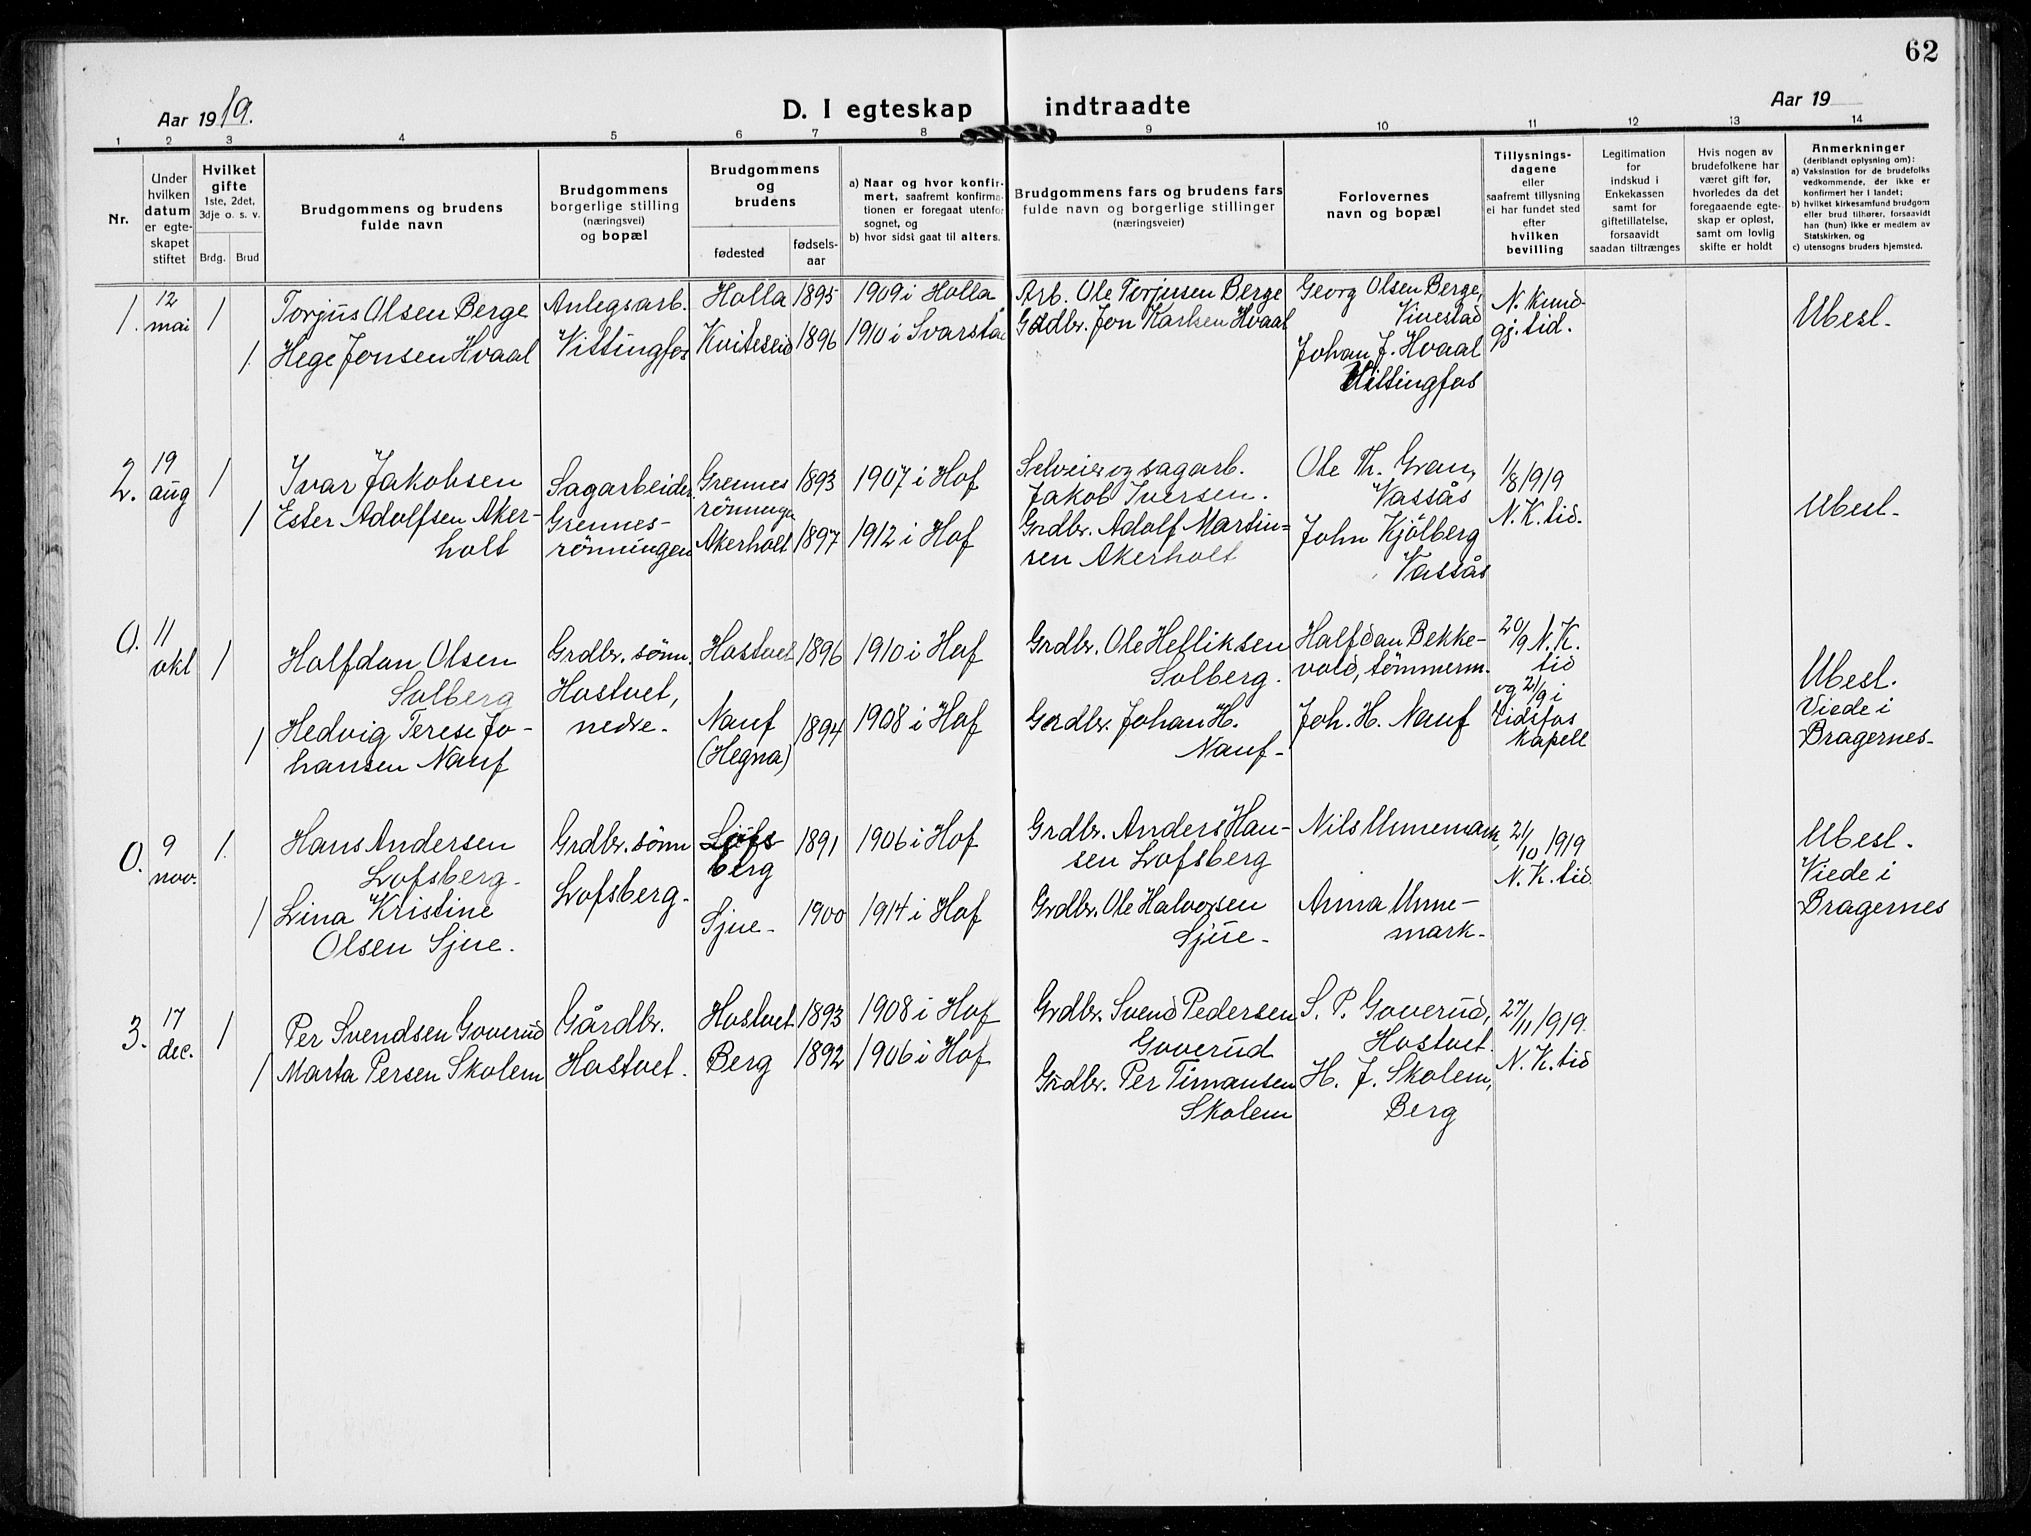 62
Aar 1919.
D. I egteskap indtraadte
Aar 19
1 2 3 4 5 6 7 8 9 10 11 12 13 14
Nr.
Under
hvilken
datum
er egte-
skapet
stiftet
Hvilket
gifte
1ste, 2det,
3dje o. s. v.
Brdg. Brud
Brudgommens og brudens
fulde navn
Brudgommens
borgerlige stilling
(næringsvei)
og bopæl
Brudgommens
og
brudens
fødested
fødsels-
aar
a) Naar og hvor konfir-
mert, saafremt konfirma-
tionen er foregaat utenfor
sognet, og
b) hvor sidst gaat til alters.
Brudgommens fars og brudens fars
fulde navn og borgerlige stillinger
(næringsveier)
Forlovernes
navn og bopæl
Tillysnings-
dagene
eller
saafremt tillysning
ei har fundet sted
efter
hvilken
bevilling
Legitimation
for
indskud i
Enkekassen
samt for
giftetillatelse,
forsaavidt
saadan tiltrænges
Hvis nogen av
brudefolkene har
været gift før,
hvorledes da det
foregaaende egte-
skap er opløst,
samt om lovlig
skifte er holdt
Anmerkninger
(deriblandt oplysning om):
a) Vaksination for de brudefolks
vedkommende, der ikke er
konfirmert her i landet;
b) hvilket kirkesamfund brudgom
eller brud tilhører, forsaavidt
han (hun) ikke er medlem av
Statskirken, og
c) utensogns bruders hjemsted.
1. 12
mai
1
Torjus Olsen Berge
1 Hege Jonsen Hvaal
Anlegsarb.
Vittingfos
Holla 1895 1909 i Holla
Kviteseid 1896 1910 i Svarstad
Arb. Ole Torjusen Berge
Grdbr. Jon Karlsen Hvaal
Georg Olsen Berge,
Vivestad
Johan J. Hvaal
Vittingfos
N. Kund-
gj. tid.
Ubesl.
2. 19
aug
1
Ivar Jakobsen
1 Ester Adolfsen Aker-
holt
Sagarbeider
Grennes-
rönningen
Grennes
rönninge 1893 1907 i Hof
Akerholt 1897 1912 i Hof
Selveier og sagarb.
Jakob Iversen.
Grdbr. Adolf Martin-
sen Akerholt
Ole Th. Gran,
Vassås
John Kjölberg
Vassås
1/8 1919
N. K. tid.
Ubesl.
0. 11
okt
1
Halfdan Olsen
Solberg
1 Hedvig Terese Jo-
hansen Nauf
Grdbr. sønn.
Hostvet,
nedre.
Hostvet 1896 1910 i Hof
Nauf
(Hegna) 1894 1908 i Hof
Grdbr. Ole Helliksen
Solberg.
Grdbr. Johan H.
Nauf-
Halfdan Bekke-
vold, tømmerm.
Joh. H. Nauf
20/9 N. K.
tid
og 21/9 i
Eidsfos
kapell
Ubesl.
Viede i
Bragernes-
0. 9
nov.
1.
Hans Andersen
Lofsberg.
1 Lina Kristine
Olsen Sjue.
Grdbr. sønn
Lofsberg.
Lofs-
berg 1891 1906 i Hof
Sjue- 1900 1914 i Hof
Grdbr. Anders Han-
sen Lofsberg
Grdbr. Ole Halvorsen
Sjue-
Nils Unnemark,
Anna Unne-
mark-
21/10 1919
N. K. tid
Ubesl.
Viede i
Bragernes
3. 17
dec.
1
Per Svendsen Goverud
1 Marta Persen Skolem
Gårdbr.
Hostvet.
Hostvet 1893 1908 i Hof
Berg 1892 1906 i Hof
Grdbr. Svend Pedersen
Goverud
Grdbr. Per Timansen
Skolem
S. P. Goverud,
Hostvet.
H. J. Skolem,
Berg
27/11 1919.
N. K. tid